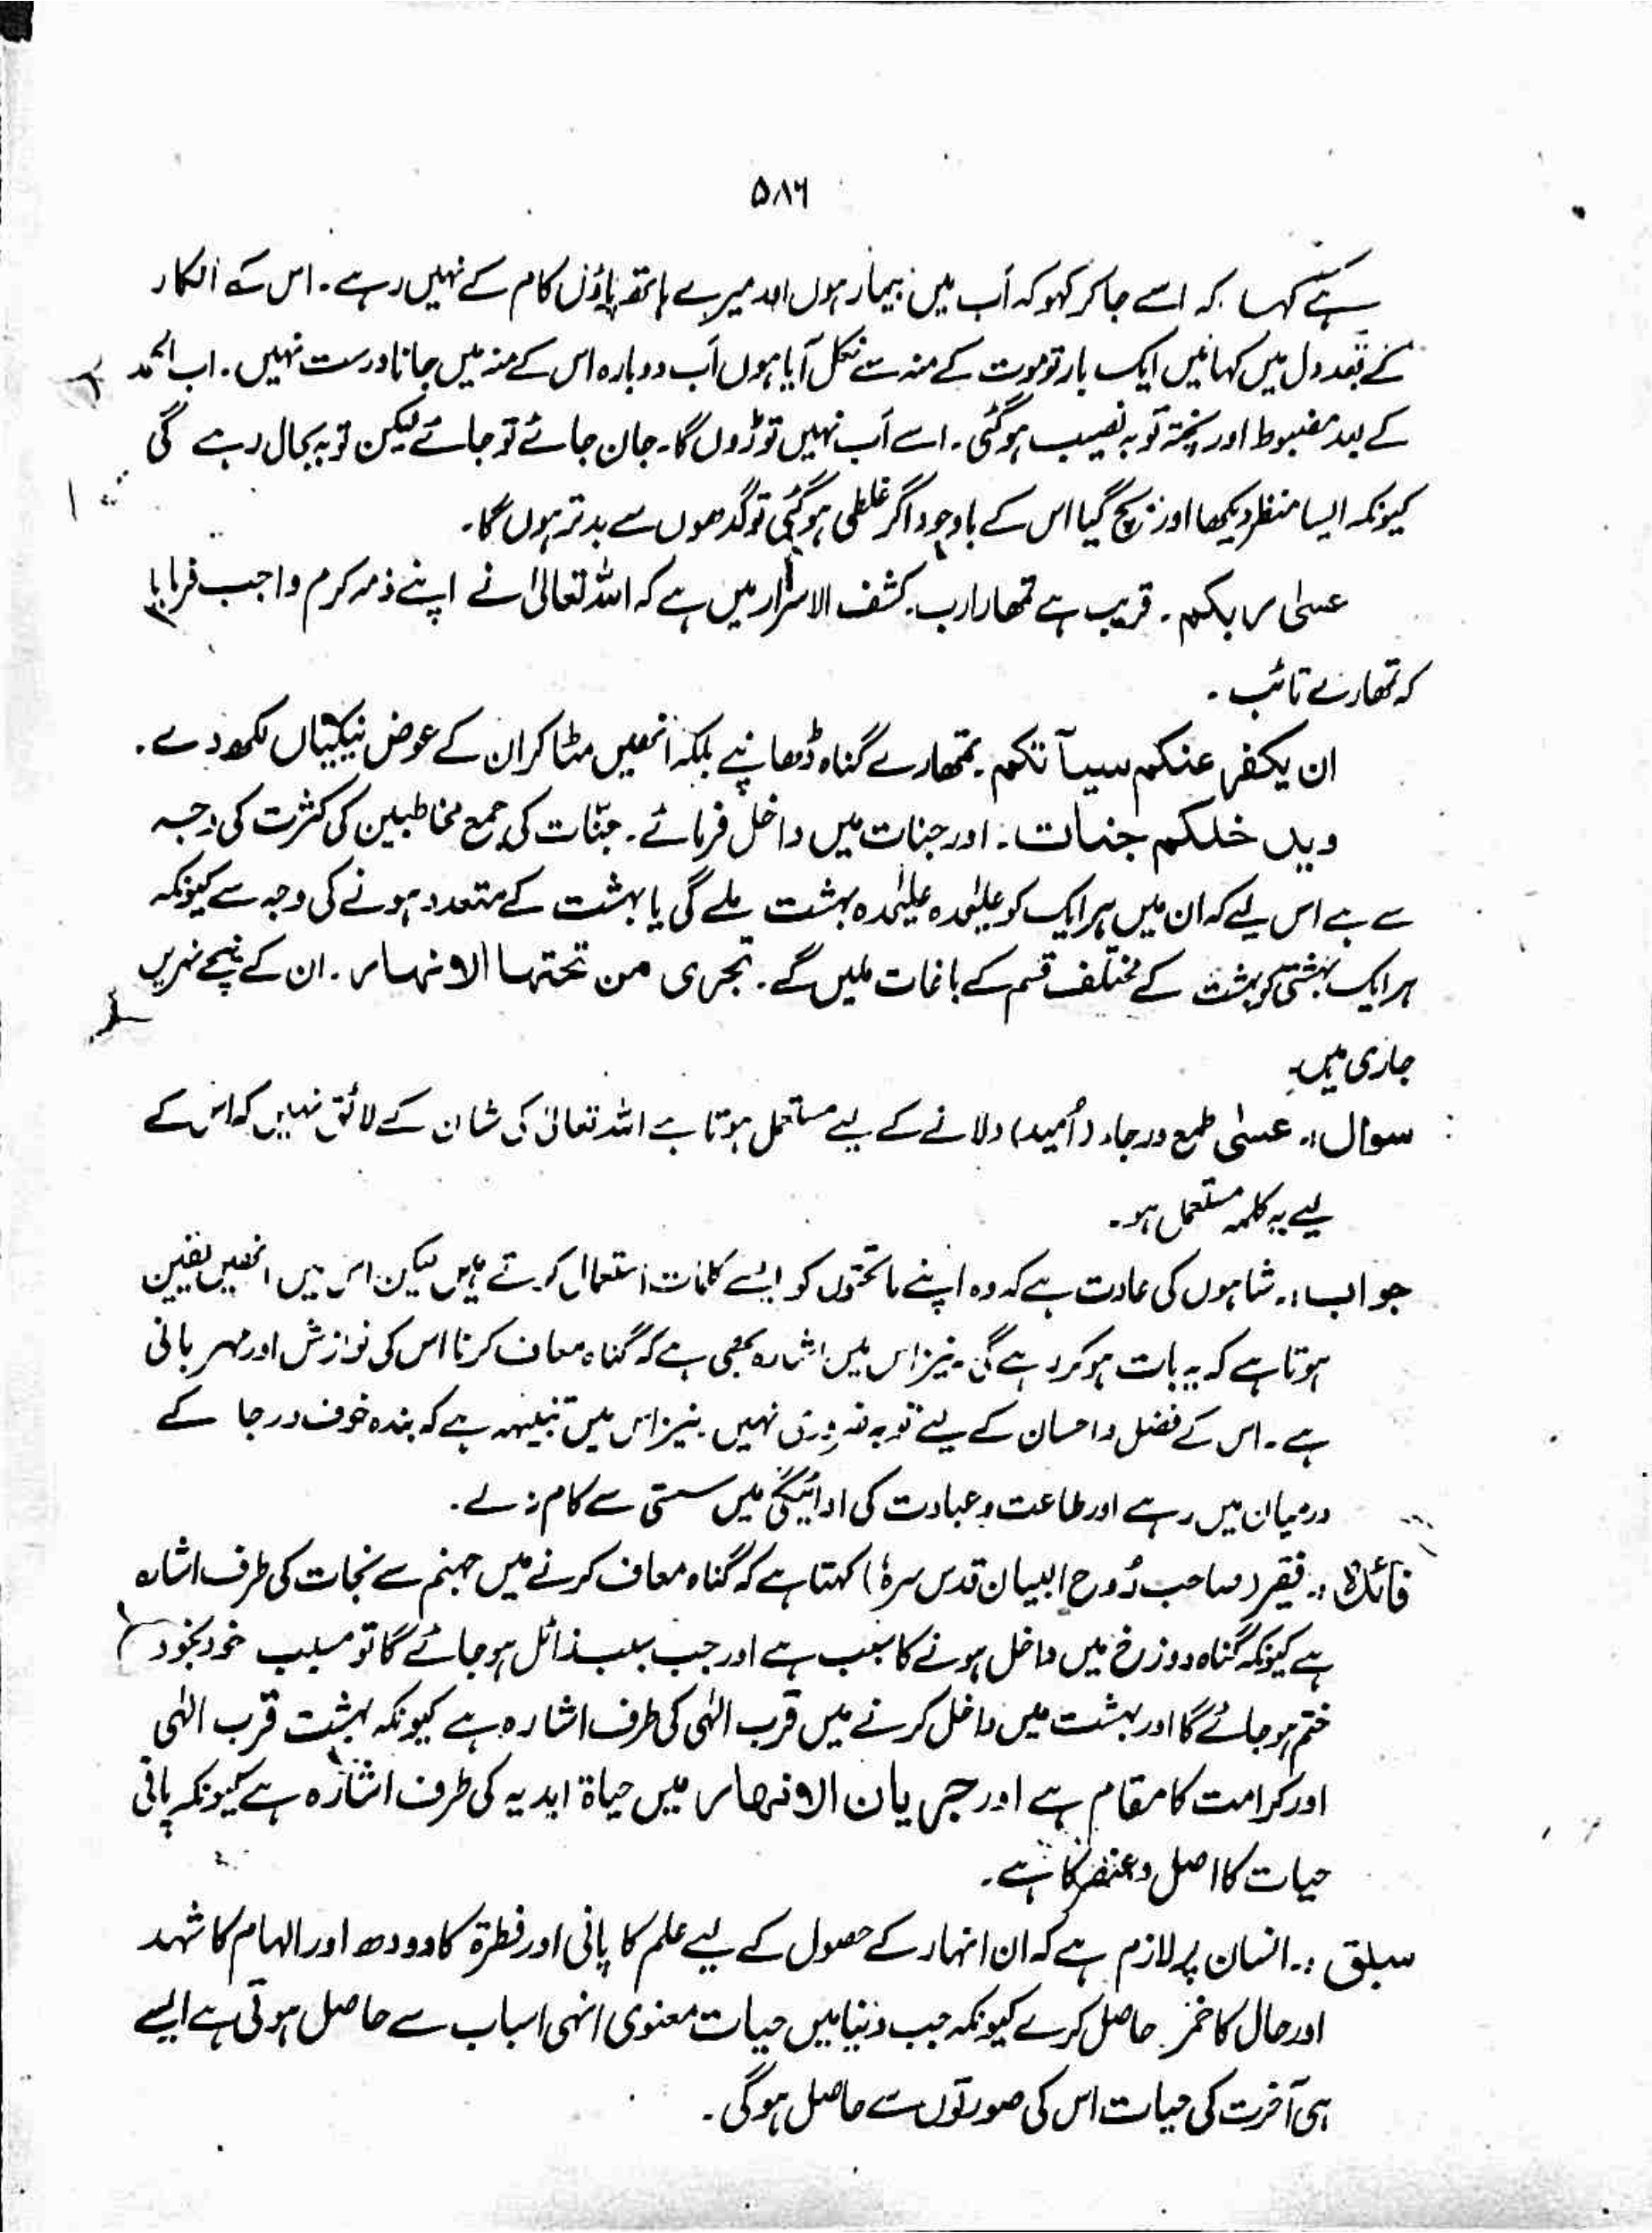 ۵۸۶
سے کہا کہ اسے جا کر کہو کہ اَب میں بیمار ہوں اور میرے ہاتھ پاؤں کام کے نہیں رہے۔ اس کے انکار
کے بعد دل میں کہا میں ایک بار تو موت کے منہ سے نکل آیا ہوں اَب دوبارہ اس کے منہ میں جانا درست نہیں۔ اب الحمد
کے بعد مضبوط اور پختہ توبہ نصیب ہوگئی۔ اسے اَب نہیں توڑوں گا۔ جان جائے تو جائے لیکن توبہ بحال رہے گی
کیونکہ ایسا منظر دیکھا اور بچ گیا اس کے باوجود اگر غلطی ہوگئی تو گدھوں سے بدتر ہوں گا۔
عسیٰ ربکم۔ قریب ہے تمھارا رب۔ کشف الاسرار میں ہے کہ اللہ تعالیٰ نے اپنے ذمہ کرم واجب فرمایا
کہ تمھارے تائب۔
ان یکفر عنکم سیآتکم۔ تمھارے گناہ ڈھانپے بلکہ انھیں مٹا کر ان کے عوض نیکیاں لکھ دے۔
ویدخلکم جنات۔ اور جنات میں داخل فرمائے۔ جنّات کی جمع مخاطبین کی کثرت کی وجہ
سے ہے اس لیے کہ ان میں ہر ایک کو علیٰحدہ علیٰحدہ بہشت ملے گی یا بہشت کے متعدد ہونے کی وجہ سے کیونکہ
ہر ایک بہشتی کو بہشت کے مختلف قسم کے باغات ملیں گے۔ تجری من تحتہا الانہار۔ ان کے نیچے نہریں
جاری ہیں۔
سوال:۔ عسیٰ طمع ورجاء (اُمید) دلانے کے لیے مستعمل ہوتا ہے اللہ تعالیٰ کی شان کے لائق نہیں کہ اس کے
لیے یہ کلمہ مستعمل ہو۔
جواب:۔ شاہوں کی عادت ہے کہ وہ اپنے ماتحتوں کو ایسے کلمات استعمال کرتے ہیں لیکن اس میں انھیں یقین
ہوتا ہے کہ یہ بات ہو کر رہے گی۔ نیز اس میں اشارہ بھی ہے کہ گناہ معاف کرنا اس کی نوازش اور مہربانی
ہے۔ اس کے فضل واحسان کے لیے توبہ ضروری نہیں۔ نیز اس میں تنبیہہ ہے کہ بندہ خوف ورجا کے
درمیان میں رہے اور طاعت وعبادت کی ادائیگی میں سستی سے کام نہ لے۔
فائدہ:۔ فقیر (صاحب رُوح البیان قدس سرہٗ) کہتا ہے کہ گناہ معاف کرنے میں جہنم سے نجات کی طرف اشارہ
ہے کیونکہ گناہ دوزخ میں داخل ہونے کا سبب ہے اور جب سبب زائل ہو جائے گا تو مسبب خود بخود
ختم ہو جائے گا اور بہشت میں داخل کرنے میں قرب الٰہی کی طرف اشارہ ہے کیونکہ بہشت قرب الٰہی
اور کرامت کا مقام ہے اور جریان الانہار میں حیاۃ ابدیہ کی طرف اشارہ ہے کیونکہ پانی
حیات کا اصل وعنصر کا ہے۔
سبق:۔ انسان پر لازم ہے کہ ان انہار کے حصول کے لیے علم کا پانی اور فطرۃ کا دودھ اور الہام کا شہد
اور حال کا خمر حاصل کرے کیونکہ جب دنیا میں حیات معنوی انہی اسباب سے حاصل ہوتی ہے ایسے
ہی آخرت کی حیات اس کی صورتوں سے حاصل ہوگی۔